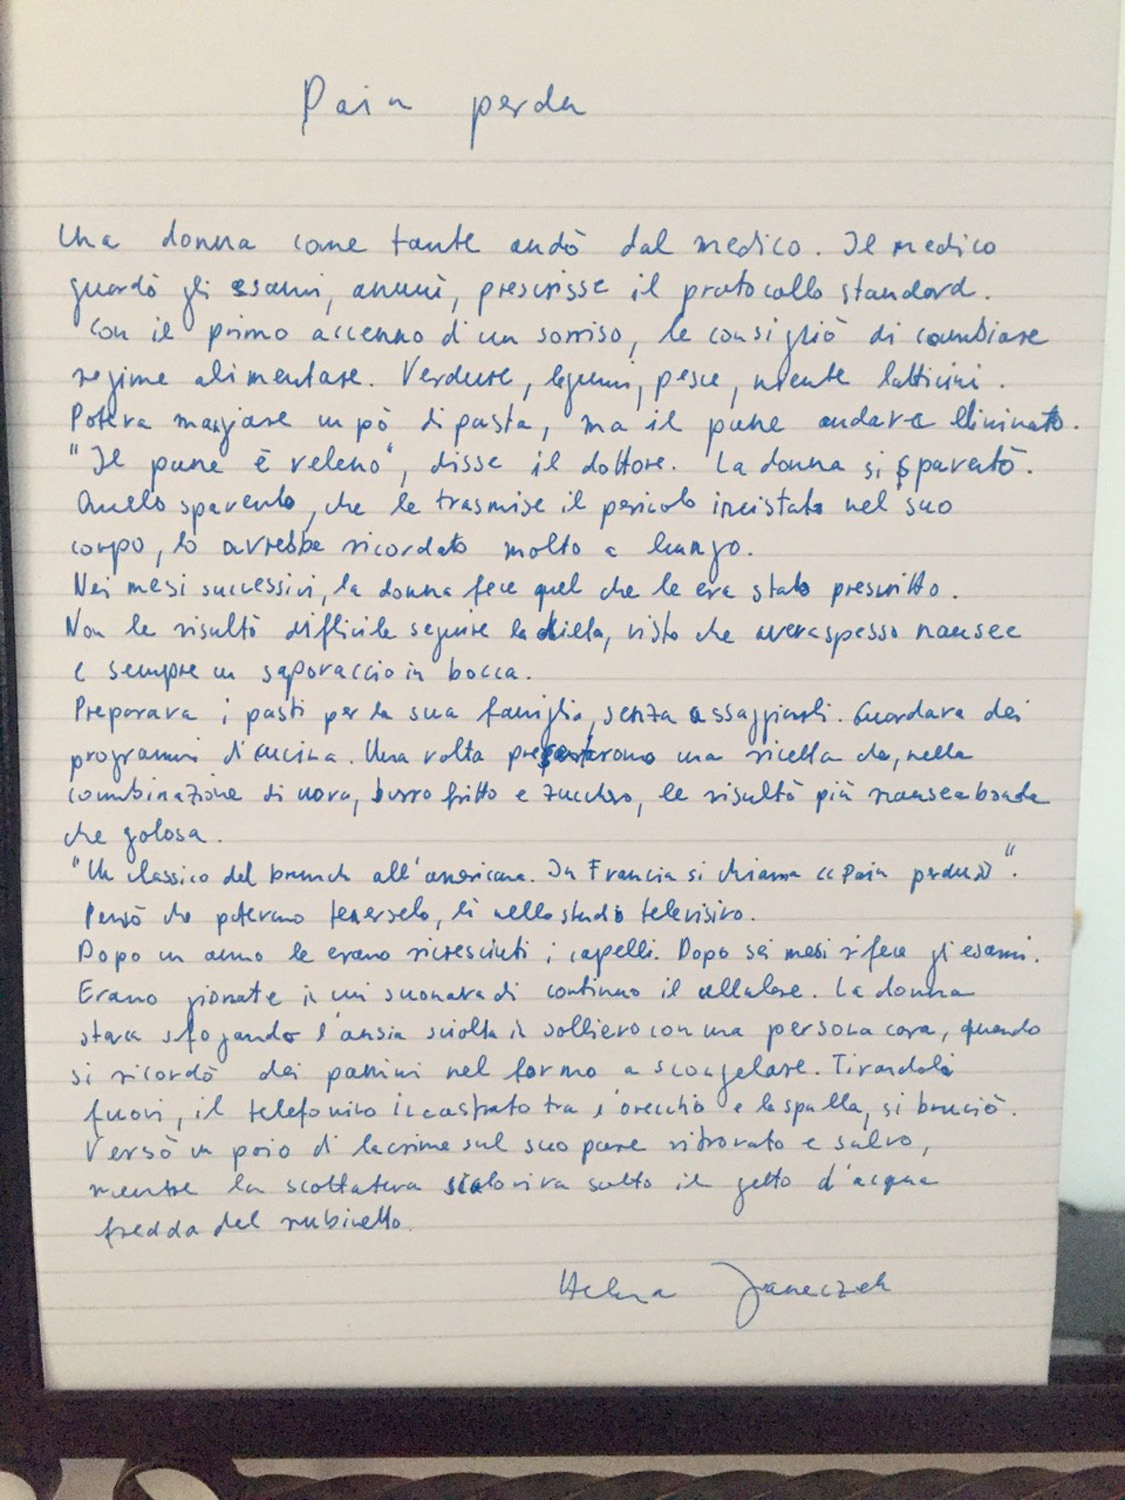 Pain perdu
Una donna come tante andò dal medico. Il medico
guardò gli esami, annuì, prescrisse il protocollo standard.
Con il primo accenno di un sorriso, le consigliò di cambiare
regime alimentare. Verdure, legumi, pesce, niente latticini.
Poteva mangiare un pò di pasta, ma il pane andava eliminato.
"Il pane è veleno", disse il dottore. La donna si spaventò.
Quello spavento, che le trasmise il pericolo incistato nel suo
corpo, lo avrebbe ricordato molto a lungo.
Nei mesi successivi, la donna fece quel che le era stato prescritto.
Non le risultò difficile seguire la dieta, visto che aveva spesso nausee
e sempre un saporaccio in bocca.
Preparava i pasti per la sua famiglia, senza assaggiarli. Guardava dei
programmi di cucina. Una volta presentarono una ricetta che, nella
combinazione di uova, burro fritto e zucchero, le risultò più nauseabonda
che golosa.
"Un classico del brunch all'americana. In Francia si chiama «Pain perdu»".
Pensò che potevano tenerselo, lì nello studio televisivo.
Dopo un anno le erano ricresciuti i capelli. Dopo sei mesi rifece gli esami.
Erano giornate in cui suonava di continuo il cellulare. La donna
stava sfogando l'ansia sciolta in sollievo con una persona cara, quando
si ricordò dei panini nel forno a scongelare. Tirandoli
fuori, il telefonino incastrato tra l'orecchio e la spalla, si bruciò.
Versò un paio di lacrime sul suo pane ritrovato e salvo,
mentre la scottatura sbolliva sotto il getto d'acqua
fredda del rubinetto.
Helena Janeczek